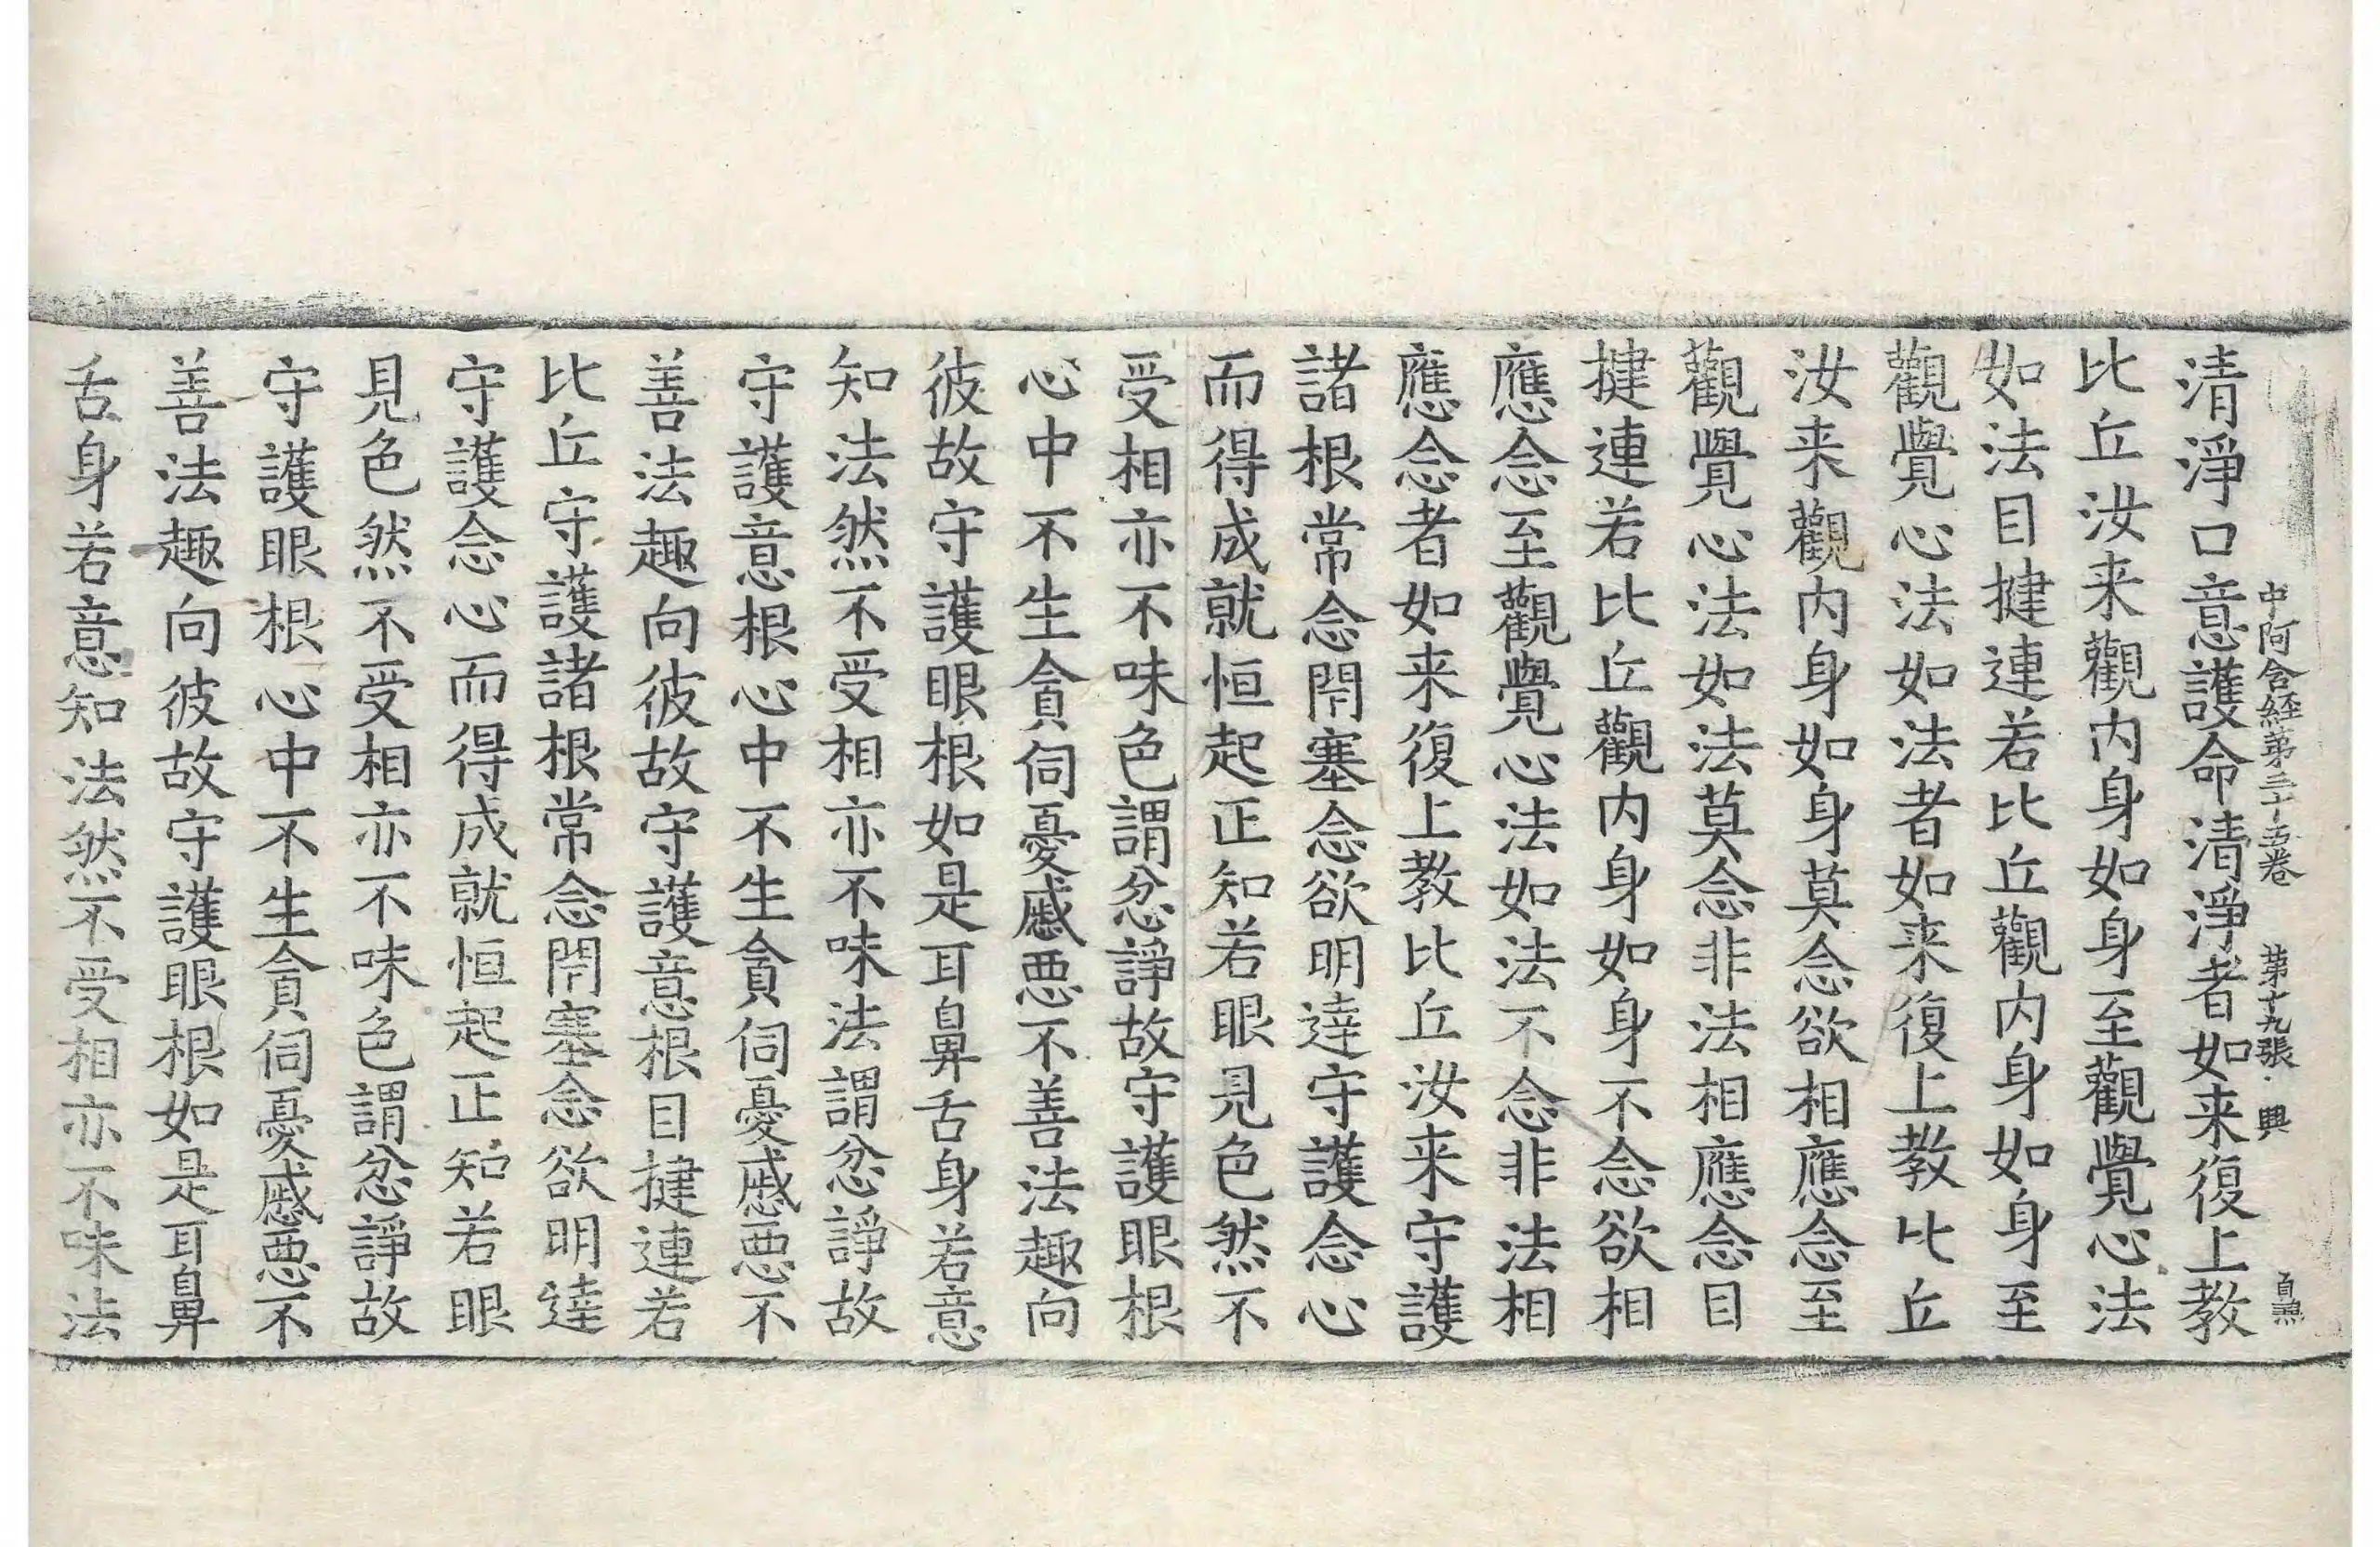 中阿含経第三十五卷 第十九張 興
清淨口意護命清淨者如来復上教
比丘汝来觀内身如身至觀覺心法
如法目揵連若比丘觀内身如身至
觀覺心法如法者如来復上教比丘
汝来觀内身如身莫念欲相應念至
觀覺心法如法莫念非法相應念目
揵連若比丘觀内身如身不念欲相
應念至觀覺心法如法不念非法相
應念者如来復上教比丘汝来守護
諸根常念閇塞念欲明達守護念心
而得成就恒起正知若眼見色然不
受相亦不味色謂忿諍故守護眼根
心中不生貪伺憂慼惡不善法趣向
彼故守護眼根如是耳鼻舌身若意
知法然不受相亦不味法謂忿諍故
守護意根心中不生貪伺憂慼惡不
善法趣向彼故守護意根目揵連若
比丘守護諸根常念閇塞念欲明達
守護念心而得成就恒起正知若眼
見色然不受相亦不味色謂忿諍故
守護眼根心中不生貪伺憂慼惡不
善法趣向彼故守護眼根如是耳鼻
舌身若意知法然不受相亦不味法